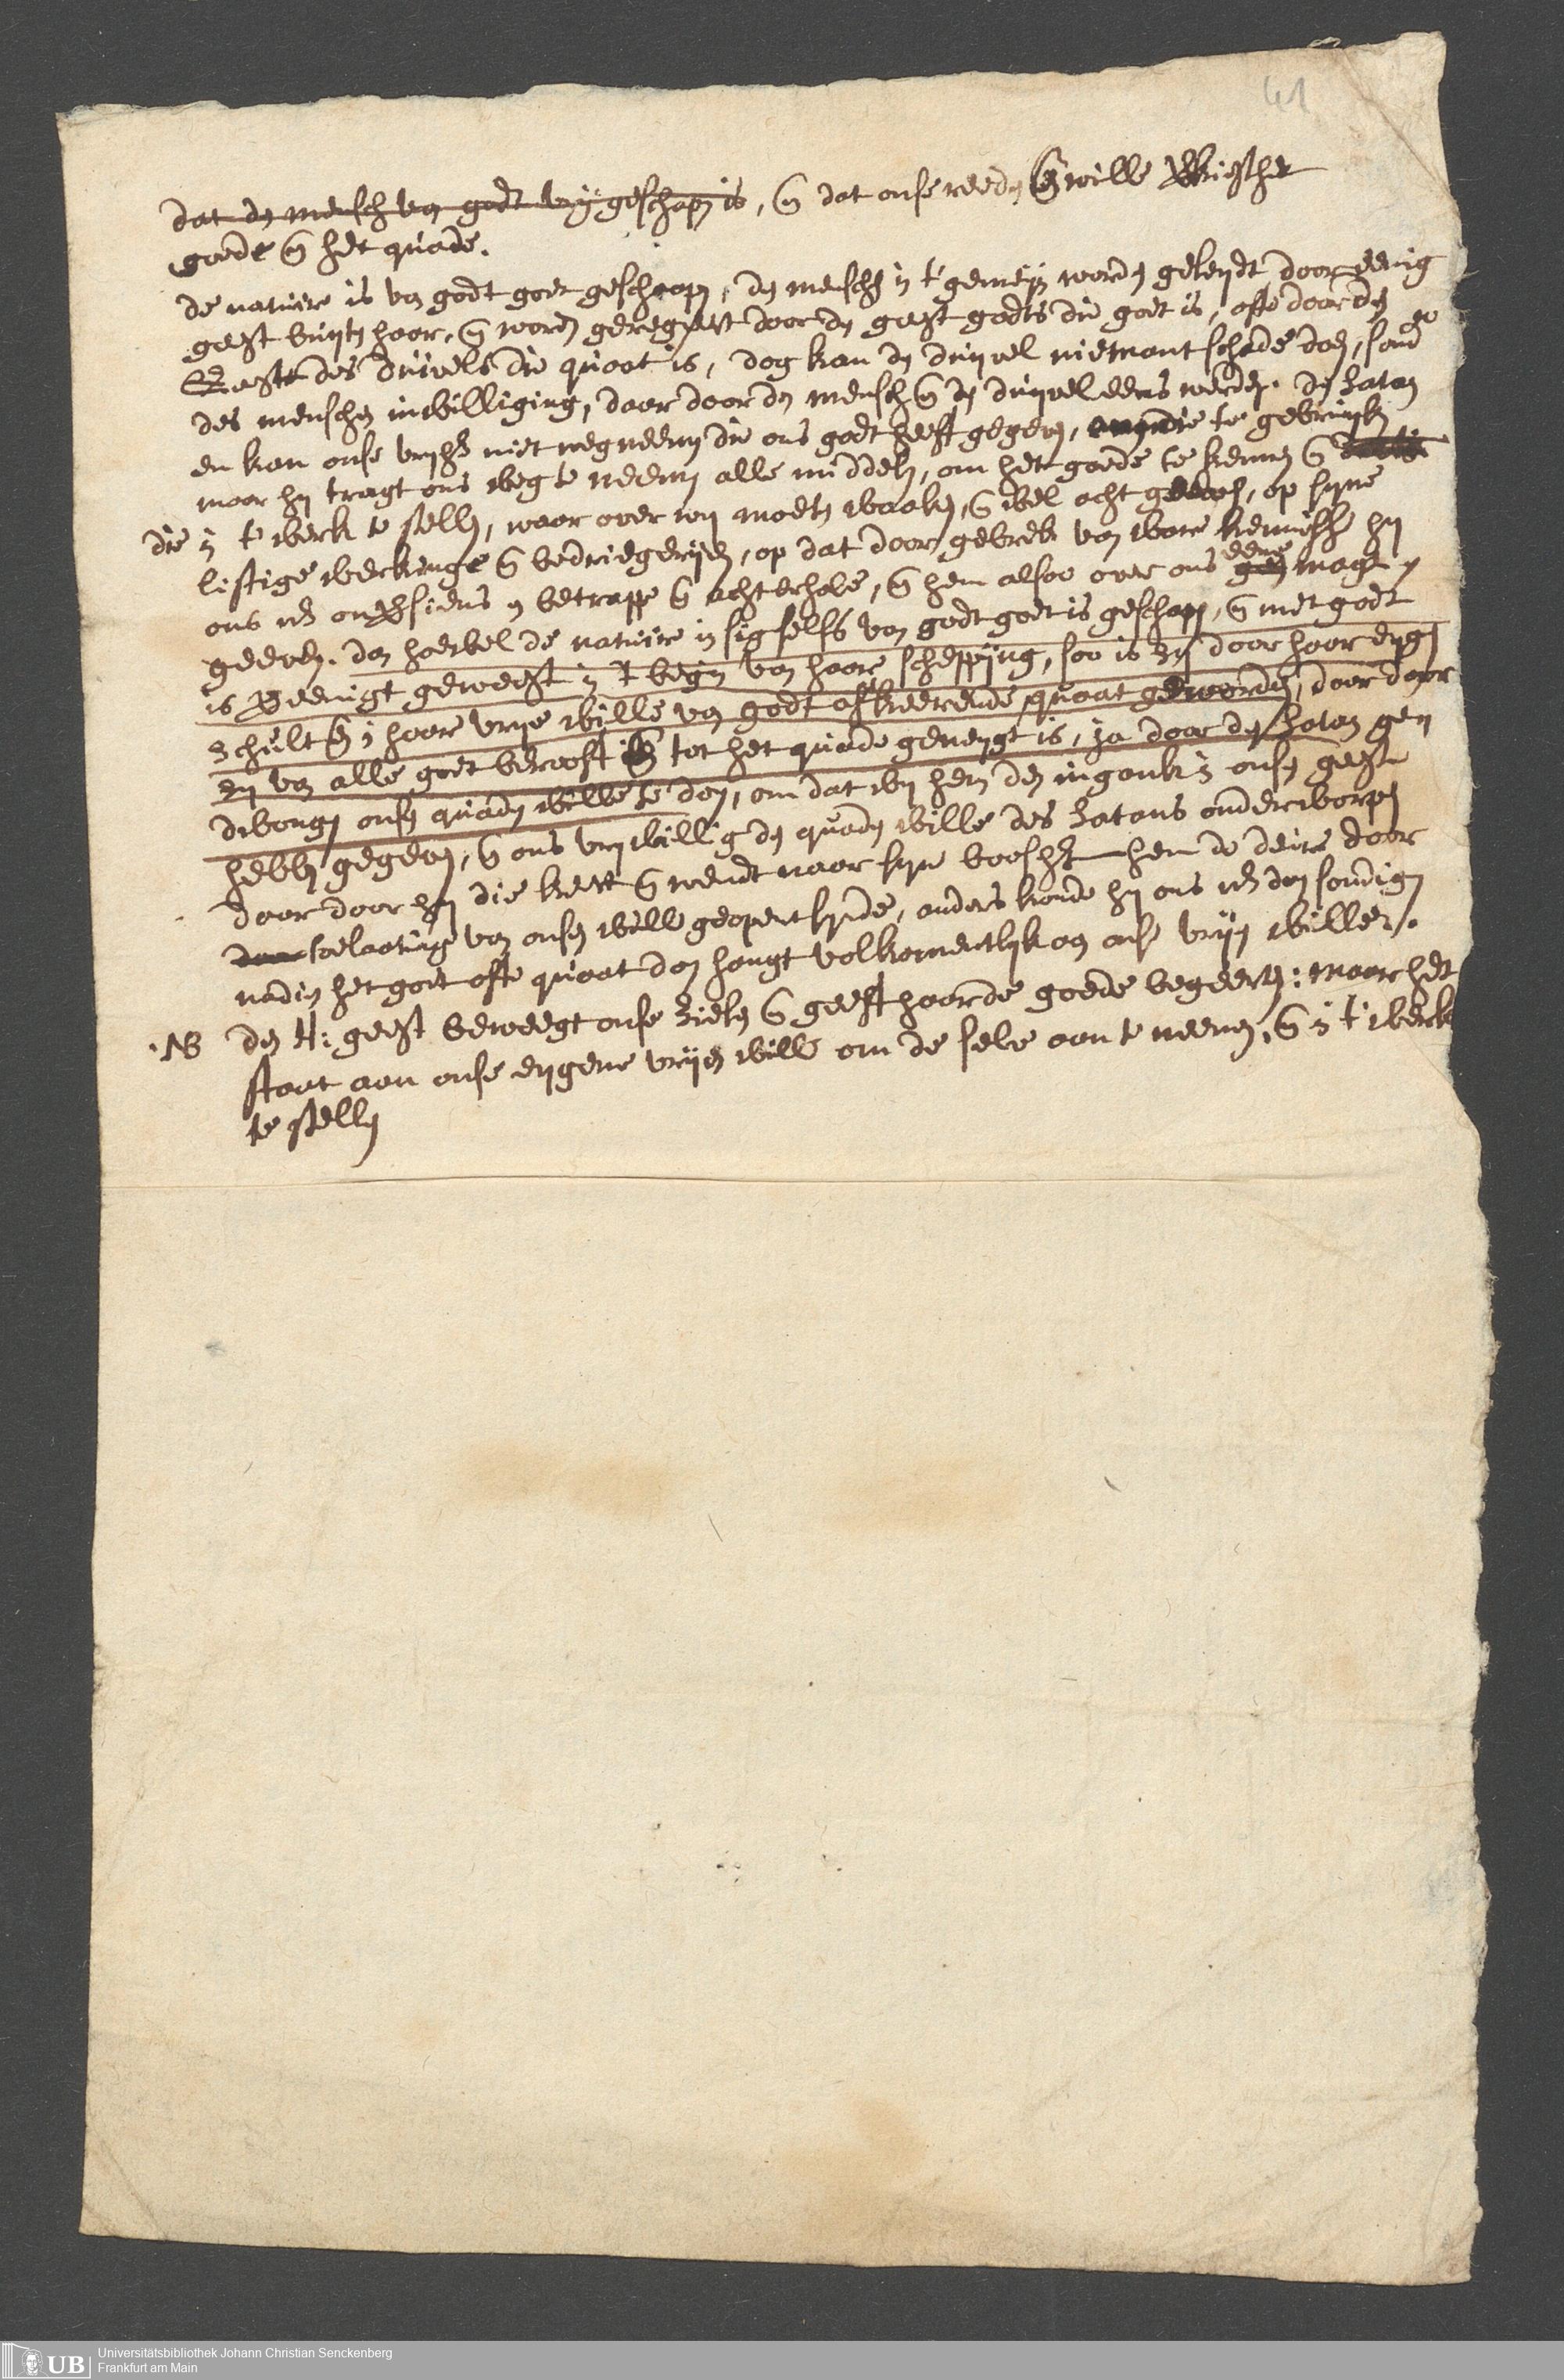 41
dat den mensch van godt vrÿ geschapen is, en dat onse reeden en wille verkiest het
goede en het quade.
de natuire is van godt goet geschapen, den menschen in t'gemeÿn worden geleydt door eenig
geest buyten haar, en worden geregeert door den geest godts die goet is, ofte door den
Geest des duivels die quaat is, dog kan den duyvel niemant schade doen, sonder
des menschen inwilliging, daar door den mensch en den duyvel eens werden. den Satan
en kan onse vryheit niet wegneemen die ons godt heeft gegeven, om die te gebruyken
maar hy tragt ons weg te neemen alle middelen, om het goede te kennen en
die in t'werk te stellen, waar over wy moeten waaken, en wel acht geeven, op syne
listige werkinge en bedriegeryen, op dat door gebrek van ware kennisse hy
ons niet onversiens en betrappe en achterhale, en hem alsoo over ons eene magt en
geeven. dan hoewel de natuire in sigselfs van godt goet is geschapen, en met godt
is vereenigt geweest in t begin van haare schepping, soo is zy door haar eygen
schult en in haar vrye wille van godt afkeerende quaat geworden, daar door
zy van alle goet berooft en tot het quade geneygt is, ja door den Satan gen
dwongen onsen quaden wille te doen, om dat wy hem den ingank in onsen geest
hebben gegeven, en ons vrywillig den quaden wille des Satans onderworpen
daar door hy die keert en wendt naar syne boosheit hem de deure door
toelaating van onsen wille geopent synde, anders konde hy ons niet doen sondigen
nadien het goet ofte quaat doen hangt volkomentlyk aan onse vryen wille.
NB den H: geest beweegt onse zielen en geeft haar de goede begeerten: maar het
staat aan onse eygene vryen wille om de selve aan te neemen, en in t'werk
te stellen
UB
Universitätsbibliothek Johann Christian Senckenberg
Frankfurt am Main